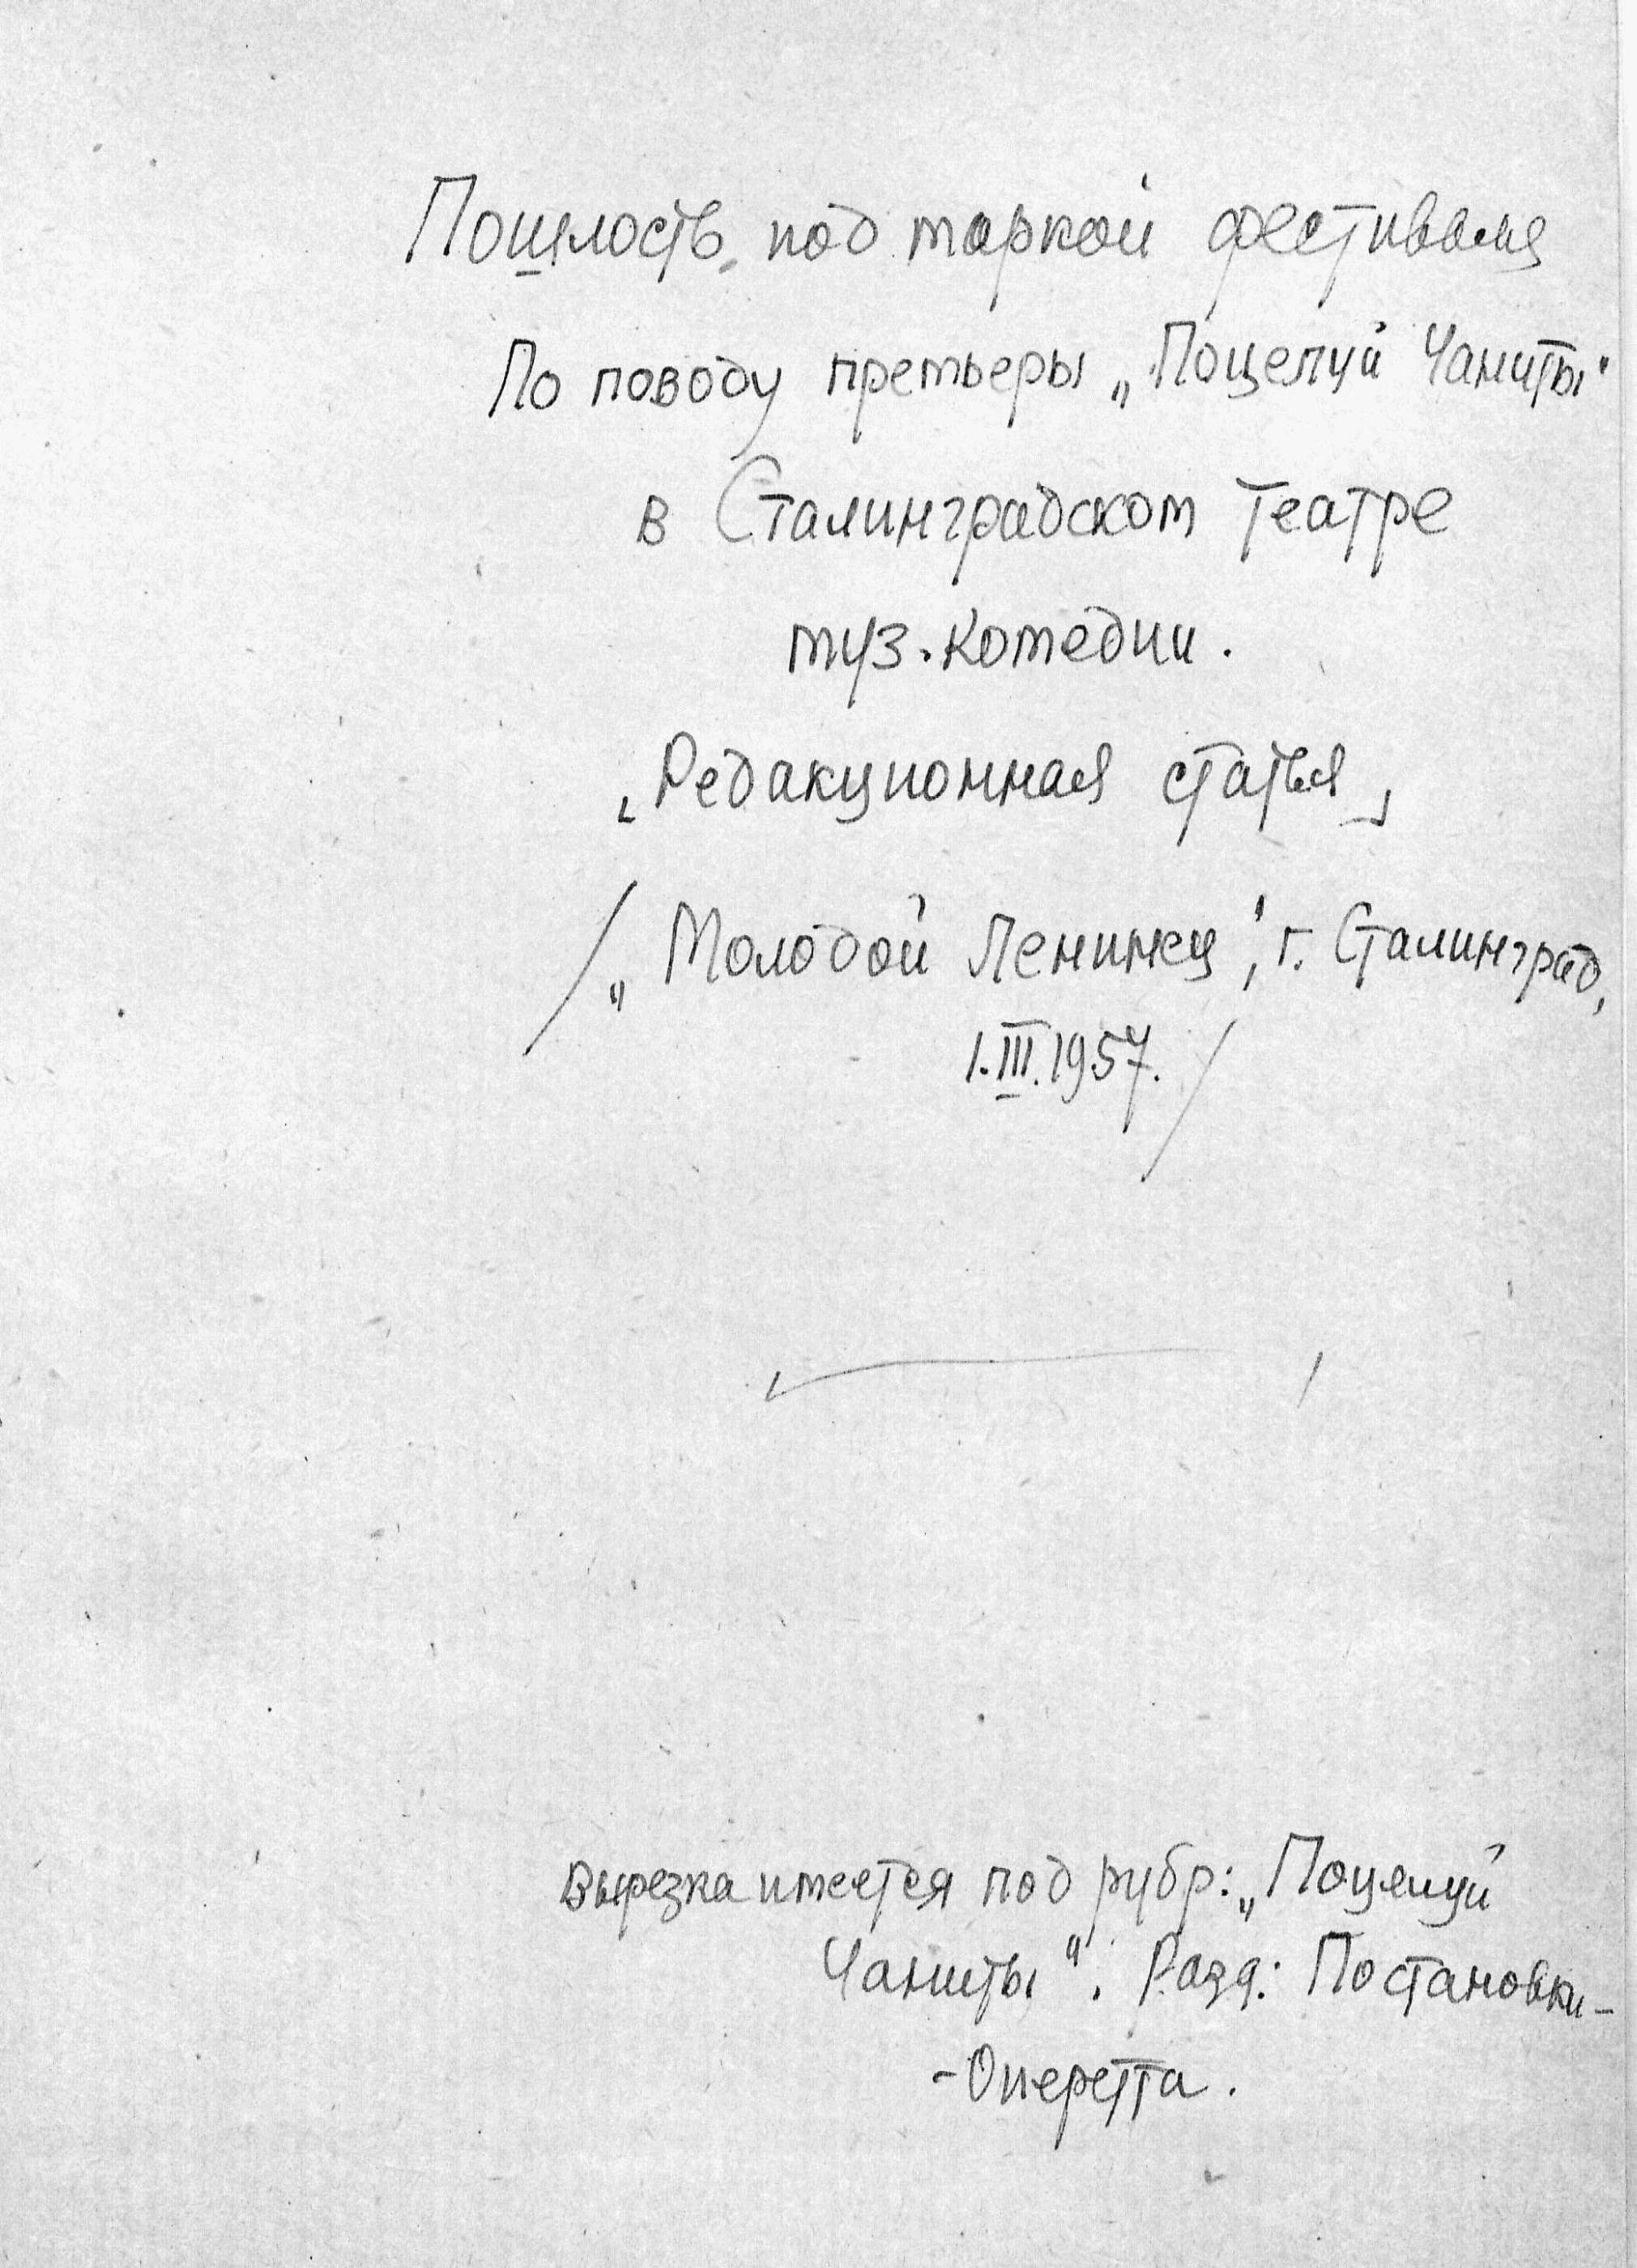 Пошлость под маркой фестиваля
По поводу премьеры „Поцелуй Чаниты"
в Сталинградском театре
муз. комедии.
[Редакционная статья]
/„Молодой Ленинец", г. Сталинград,
1.III.1957./
Вырезка имеется под рубр: „Поцелуй
Чаниты". Разд: Постановки-
-Оперетта.